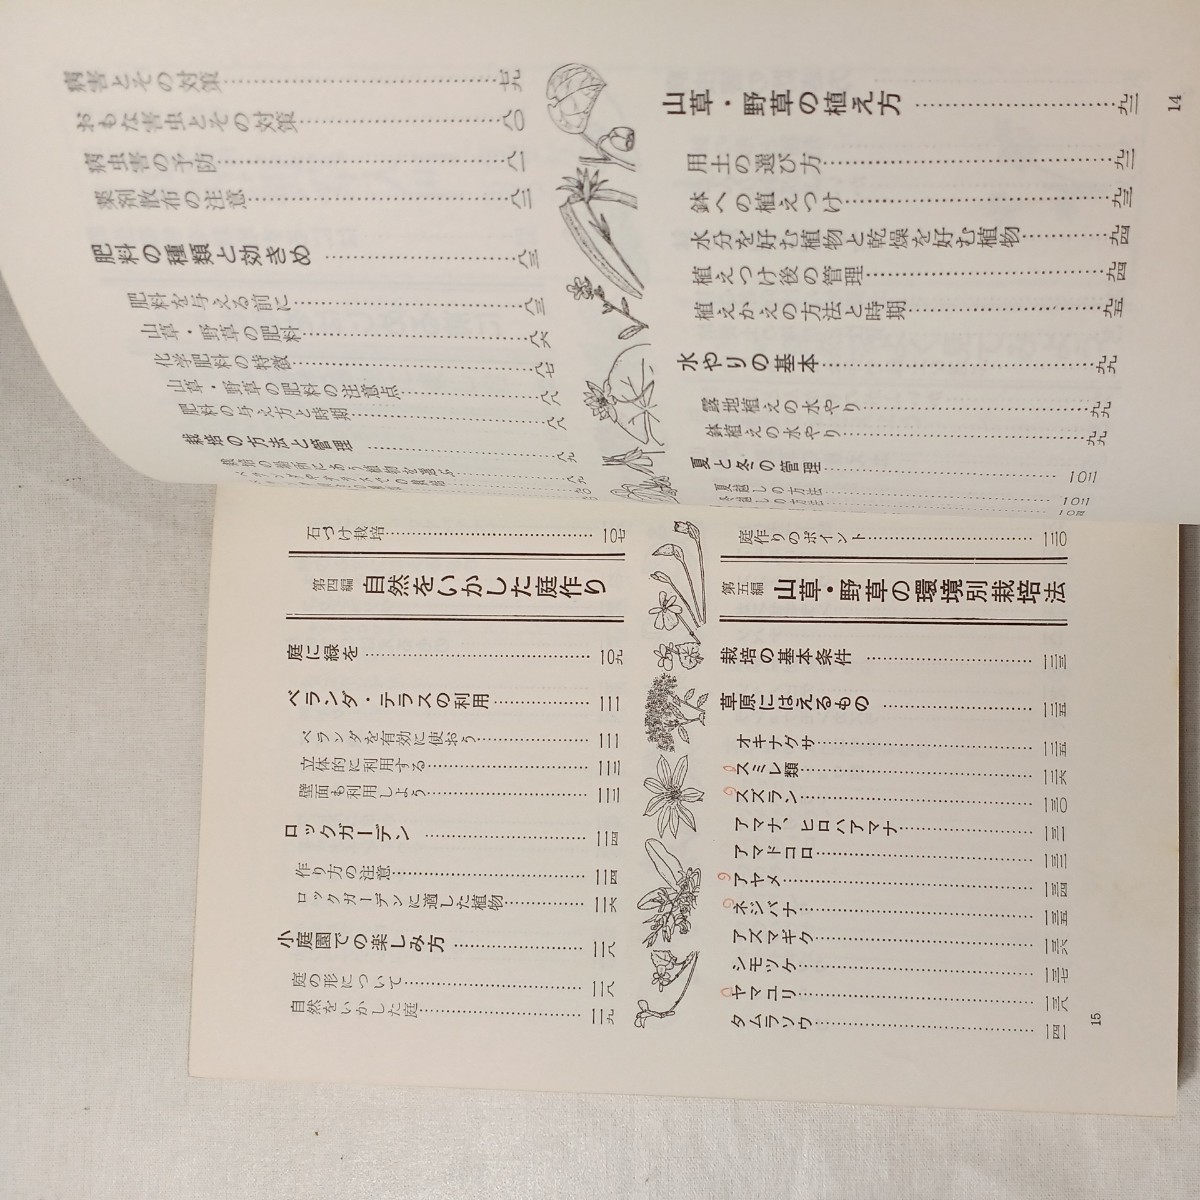 病害とその対策……七九
おもな害虫とその対策……八〇
病虫害の予防……八一
薬剤散布の注意……八二
肥料の種類と効きめ……八三
肥料を与える前に……八三
山草・野草の肥料……八六
化学肥料の特徴……八七
山草・野草の肥料の注意点……八八
肥料の与え方と時期……八八
栽培の方法と管理……八九
山草・野草の植え方……九二
用土の選び方……九二
鉢への植えつけ……九三
水分を好む植物と乾燥を好む植物……九四
植えつけ後の管理……九四
植えかえの方法と時期……九五
水やりの基本……九九
露地植えの水やり……九九
鉢植えの水やり……九九
夏と冬の管理……一〇二
夏越しの方法……一〇二
冬越しの方法……一〇四
14
石づけ栽培……一〇七
第四編 自然をいかした庭作り
庭に緑を……一〇九
ベランダ・テラスの利用……一一二
ベランダを有効に使おう……一一二
立体的に利用する……一一三
壁面も利用しよう……一一三
ロックガーデン……一一四
作り方の注意……一一四
ロックガーデンに適した植物……一一六
小庭園での楽しみ方……一一八
庭の形について……一一八
自然をいかした庭……一一九
庭作りのポイント……一二〇
第五編 山草・野草の環境別栽培法
栽培の基本条件……一二三
草原にはえるもの……一二五
オキナグサ……一二五
スミレ類……一二六
スズラン……一三〇
アマナ、ヒロハアマナ……一三二
アマドコロ……一三三
アヤメ……一三四
ネジバナ……一三五
アズマギク……一三六
シモツケ……一三七
ヤマユリ……一三八
タムラソウ……一四一
15